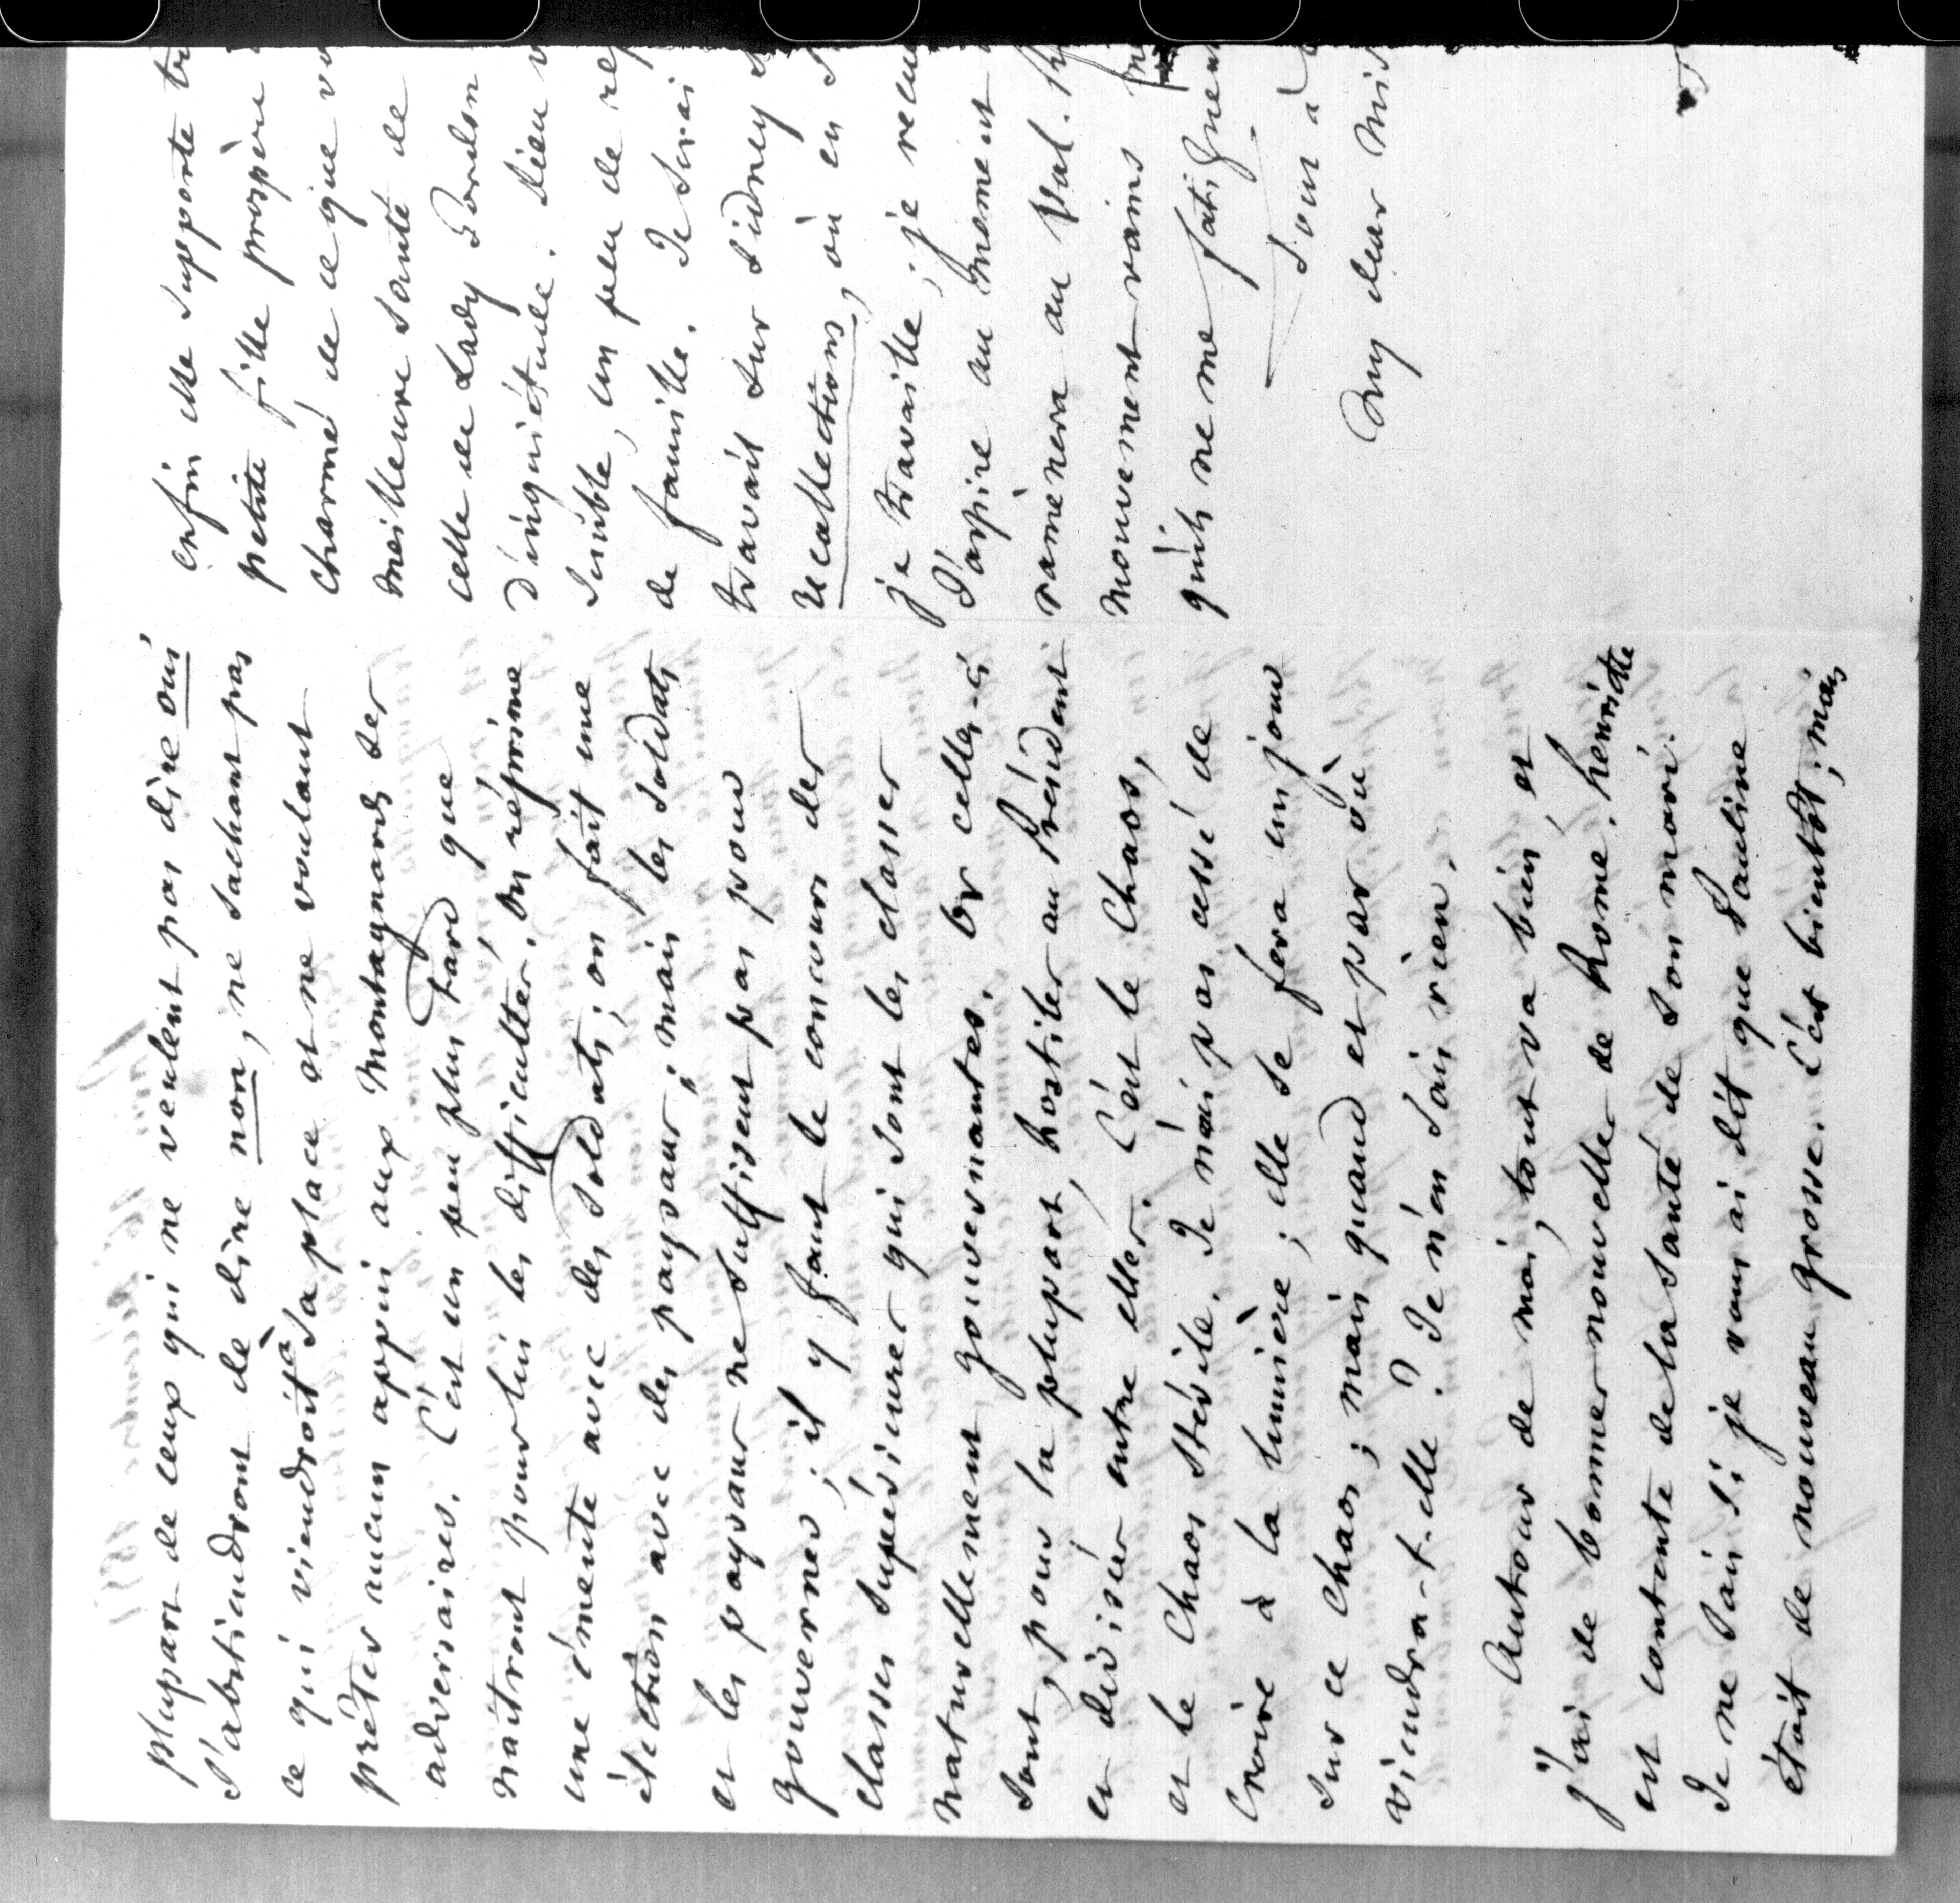 plupart de ceux qui ne veulent pas dire oui
s'abstiendront de dire non, ne sachant pas
ce qui viendroit à sa place et ne voulant
prêter aucun appui aux Montagnards ses
adversaires. C'est un peu plus tard que
naîtront pour lui les difficultés. On réprime
une émeute avec des soldats ; on fait une
élection avec des paysans ; mais les soldats
et les paysans ne suffisent pas pour
gouverner ; il y faut le concours des
classes supérieures qui sont les classes
naturellement gouvernantes. Or celles-ci
sont, pour la plupart, hostiles au Président
et divisées entre elles. C'est le Chaos,
et le Chaos stérile. Je n'ai pas cessé de
croire à la lumière ; elle se fera un jour
sur ce Chaos ; mais quand et par où
viendra-t-elle ? Je n'en sais rien.
Autour de moi, tout va bien, et
j'ai de bonnes nouvelles de Rome. Henriette
est contente de la santé de son mari.
Je ne sais si je vous ai dit que Pauline
étoit de nouveau grosse. C'est bientôt ; mais
enfin elle supporte
petite fille prospère
charmé de ce que
meilleure santé de
celle de Lady Gordon
d'inquiétude. Dieu
semble, un peu de
de famille. Je serai
travail sur Sidney
Recollections, où en
je travaille ; je
J'aspire au moment
ramènera au Val.
mouvement vains
qu'ils ne me
Tout à
My dear